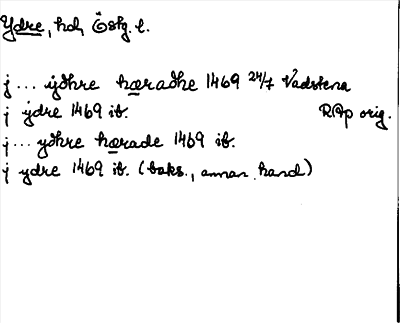 Ydre, hd, Östg. l.
j ... ydhre hæradhe 1469 24/7 Vadstena
j ydre 1469 ib. RAp orig.
j ... ydhre hærade 1469 ib.
j ydre 1469 ib. (baks., annan hand)